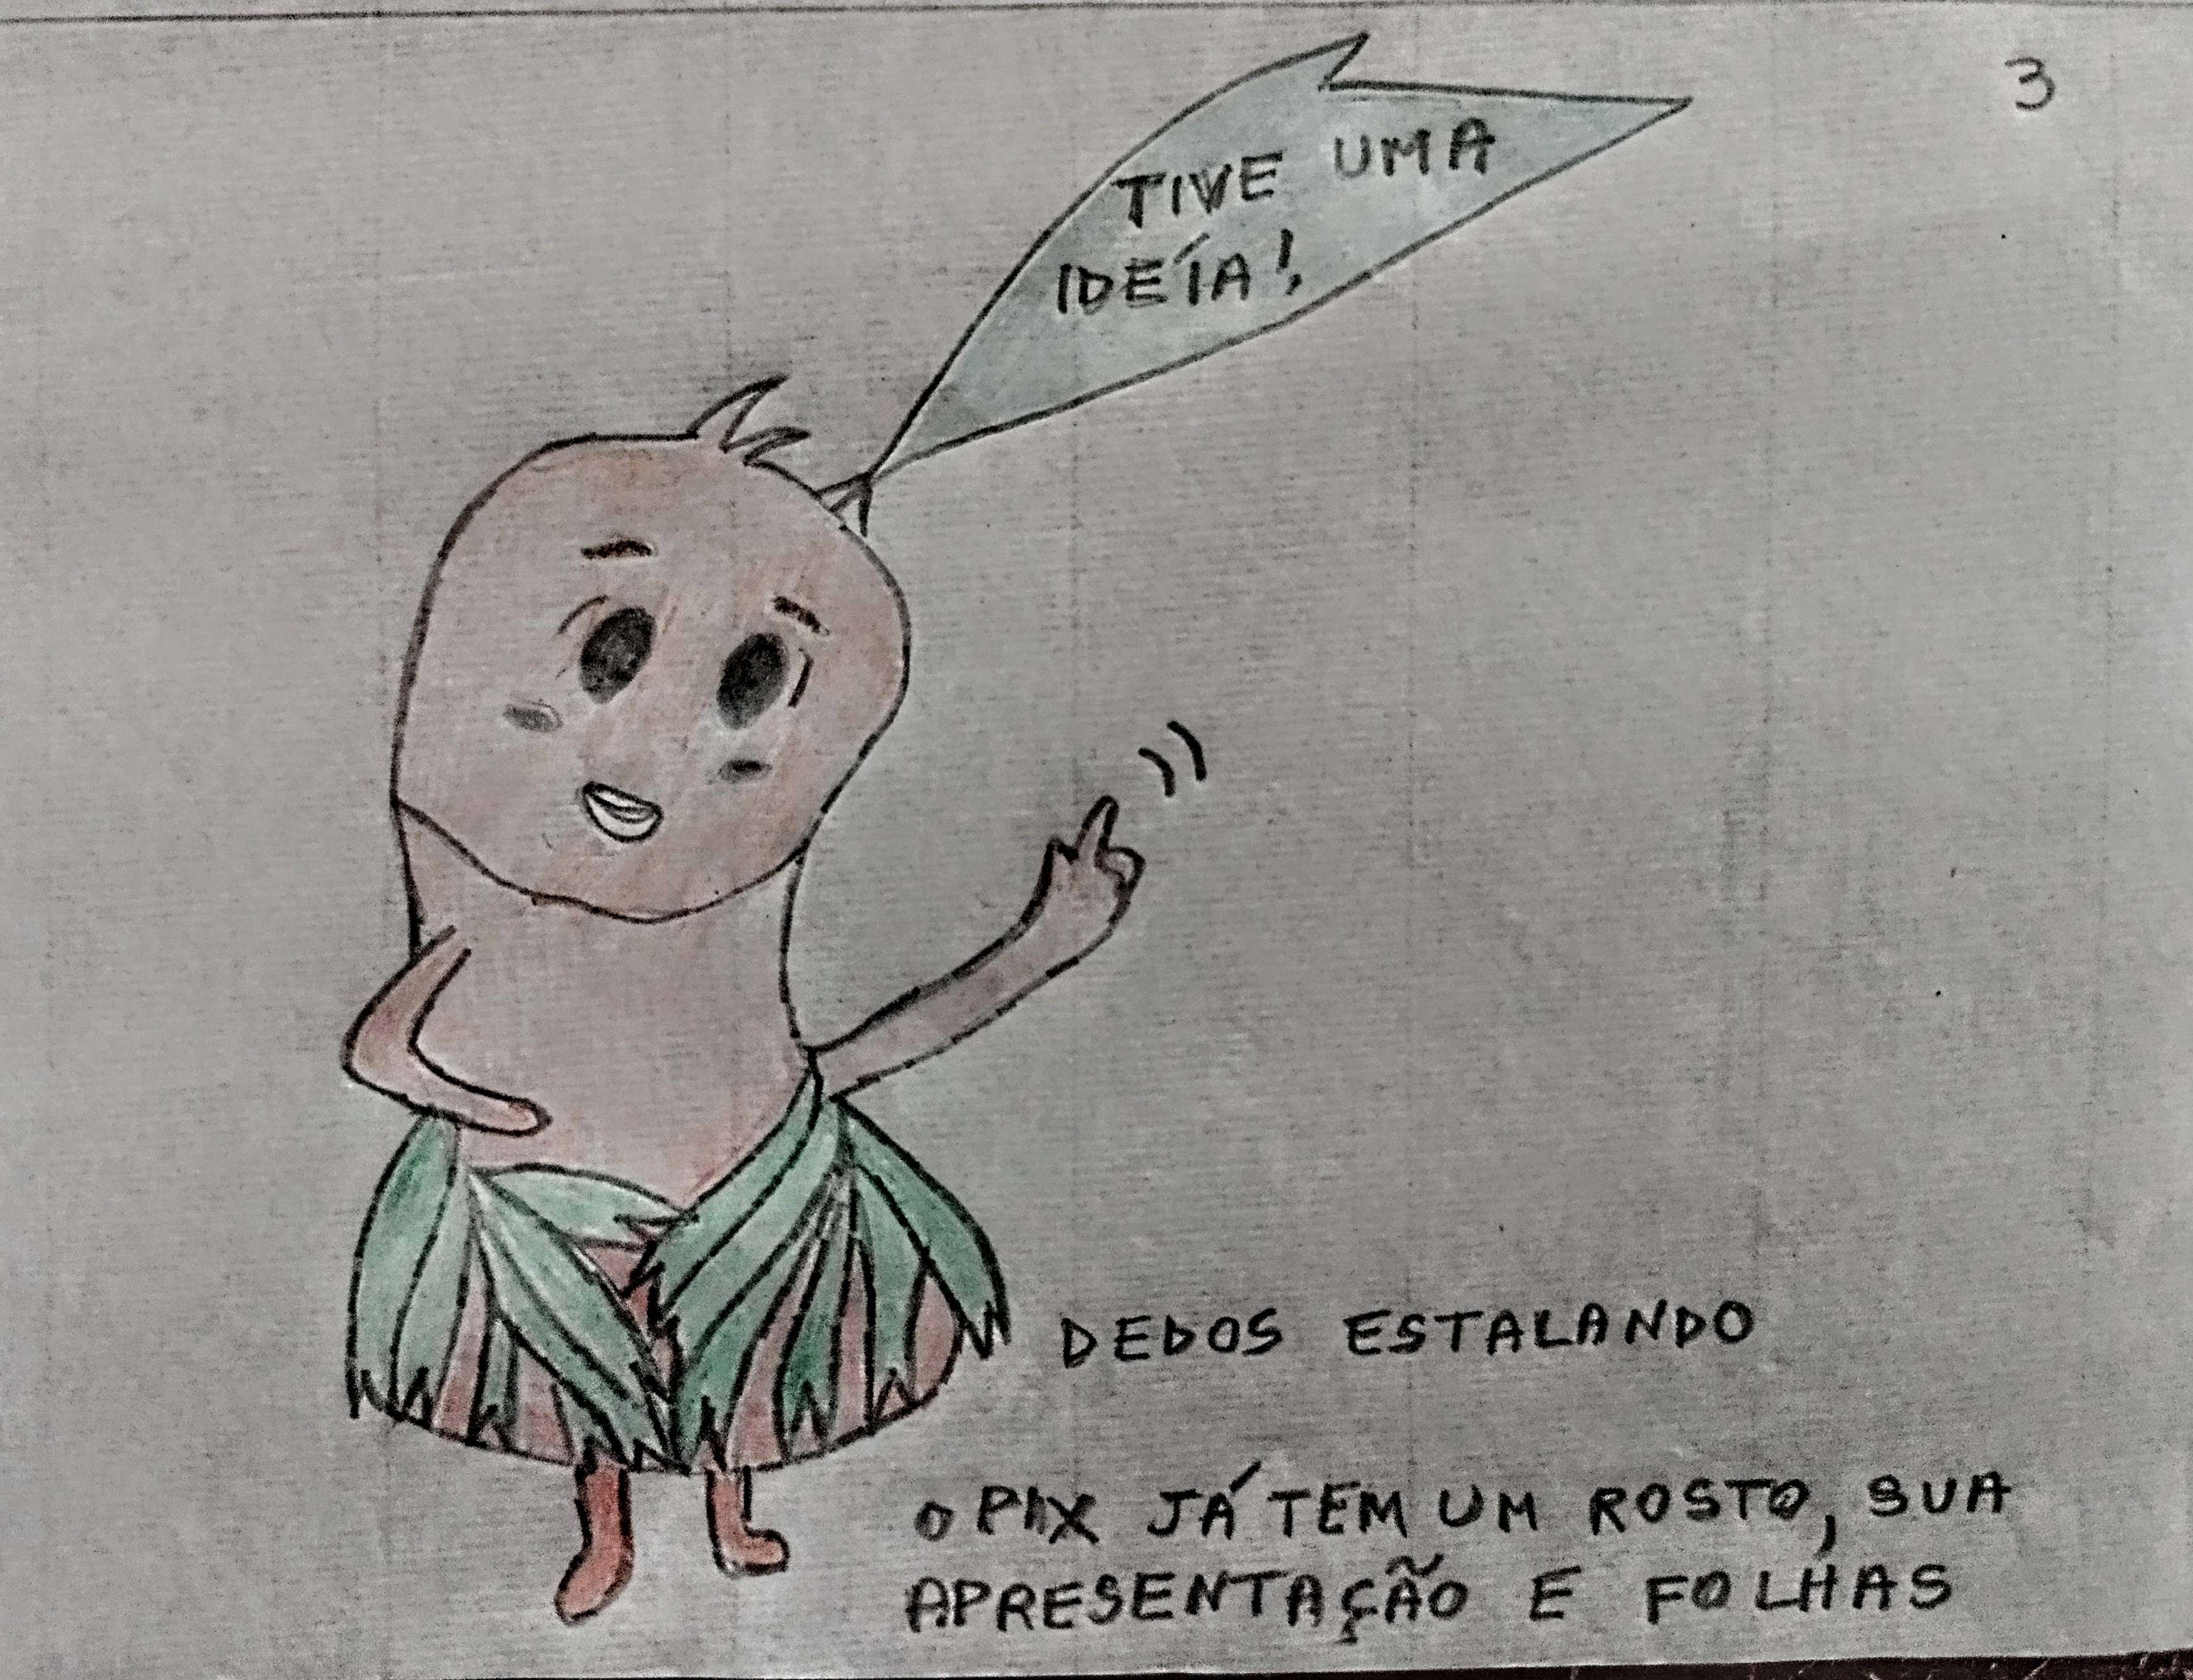 3
TIVE UMA
IDÉIA!
DEDOS ESTALANDO
O PIX JÁ TEM UM ROSTO, SUA
APRESENTAÇÃO E FOLHAS